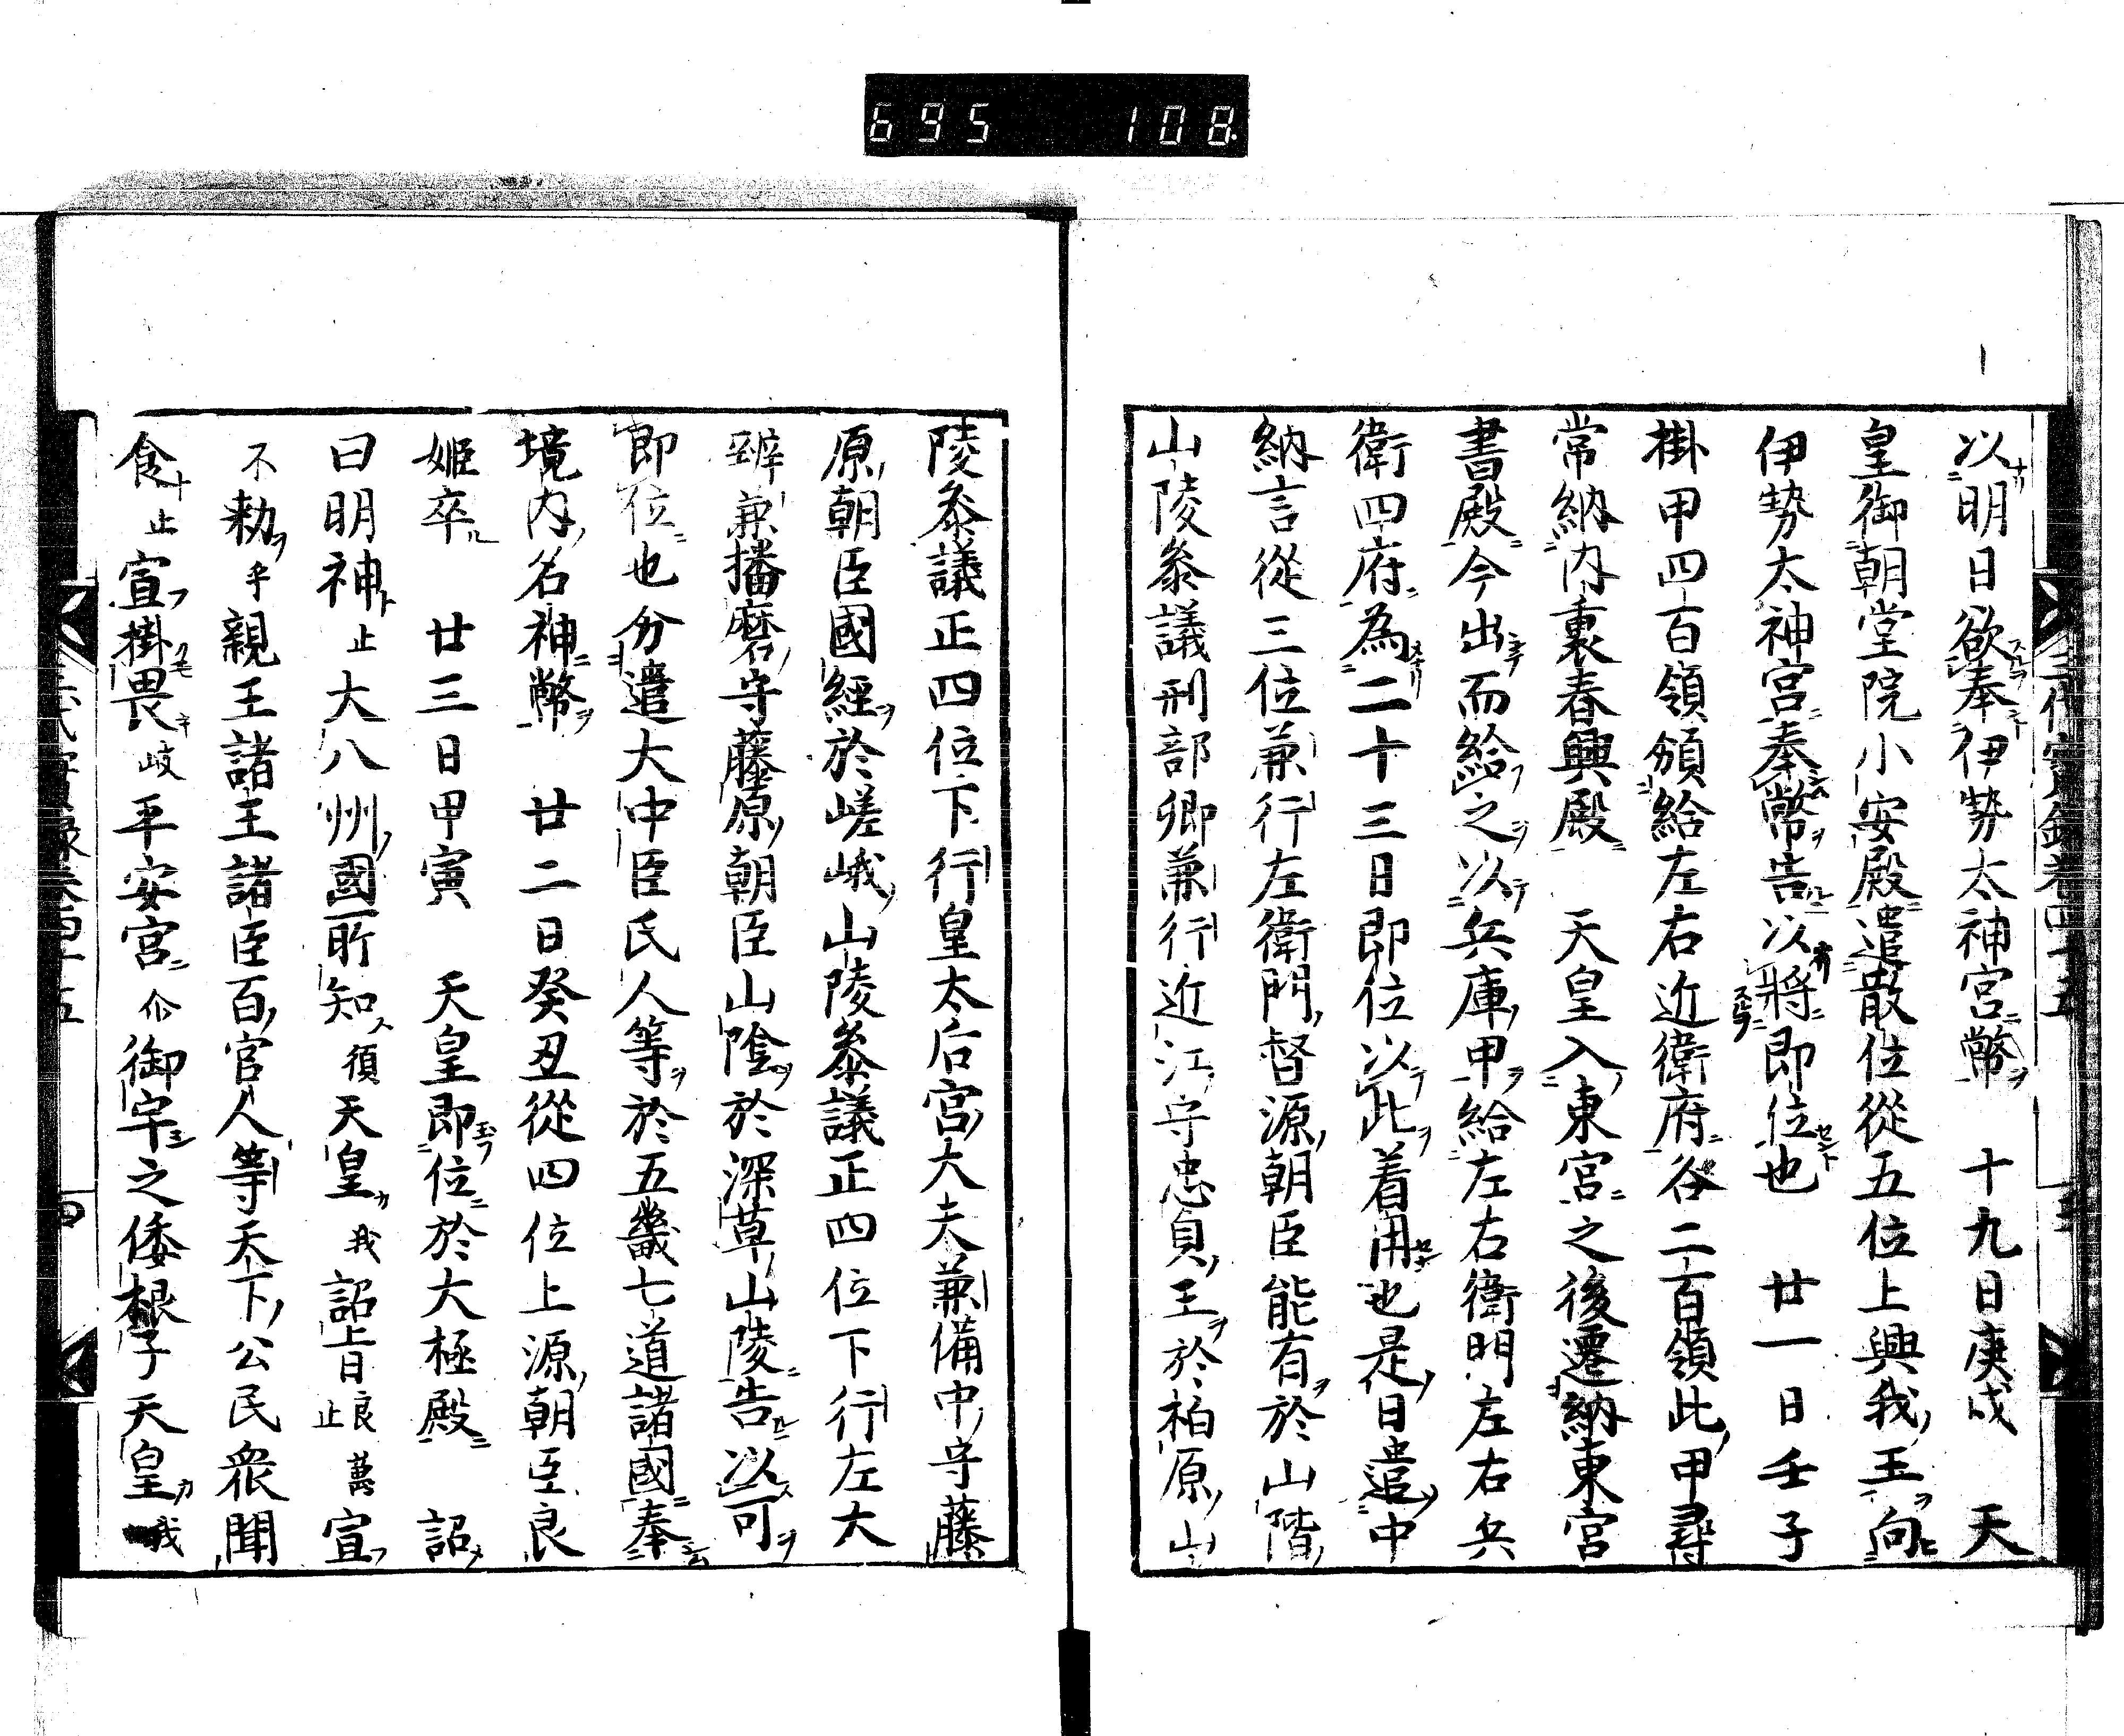 695 108
以明日欲奉伊勢太神宮幣　十九日庚戌　天
皇御朝堂院小安殿遣散位從五位上興我王向
伊勢太神宮奉幣告以將即位也　廿一日壬子
掛甲四百領頒給左右近衛府各二百領此甲尋
常納内裏春興殿　天皇入東宮之後遷納東宮
書殿今出而給之以兵庫甲給左右衛門左右兵
衛四府為二十三日即位以此着用也是日遣中
納言從三位兼行左衛門督源朝臣能有於山階
山陵叅議刑部卿兼行近江守忠貞王於柏原山
陵叅議正四位下行皇太后宮大夫兼備中守藤
原朝臣國經於嵯峨山陵叅議正四位下行左大
辨兼播磨守藤原朝臣山陰於深草山陵告以可
即位也分遣大中臣氏人等於五畿七道諸國奉
境内名神幣　廿二日癸丑從四位上源朝臣良
姫卒　廿三日甲寅　天皇即位於大極殿　詔
曰明神止大八州國所知須天皇我詔旨良止萬宣
不勅乎親王諸王諸臣百官人等天下公民衆聞
食止宣掛畏岐平安宮尒御宇之倭根子天皇我